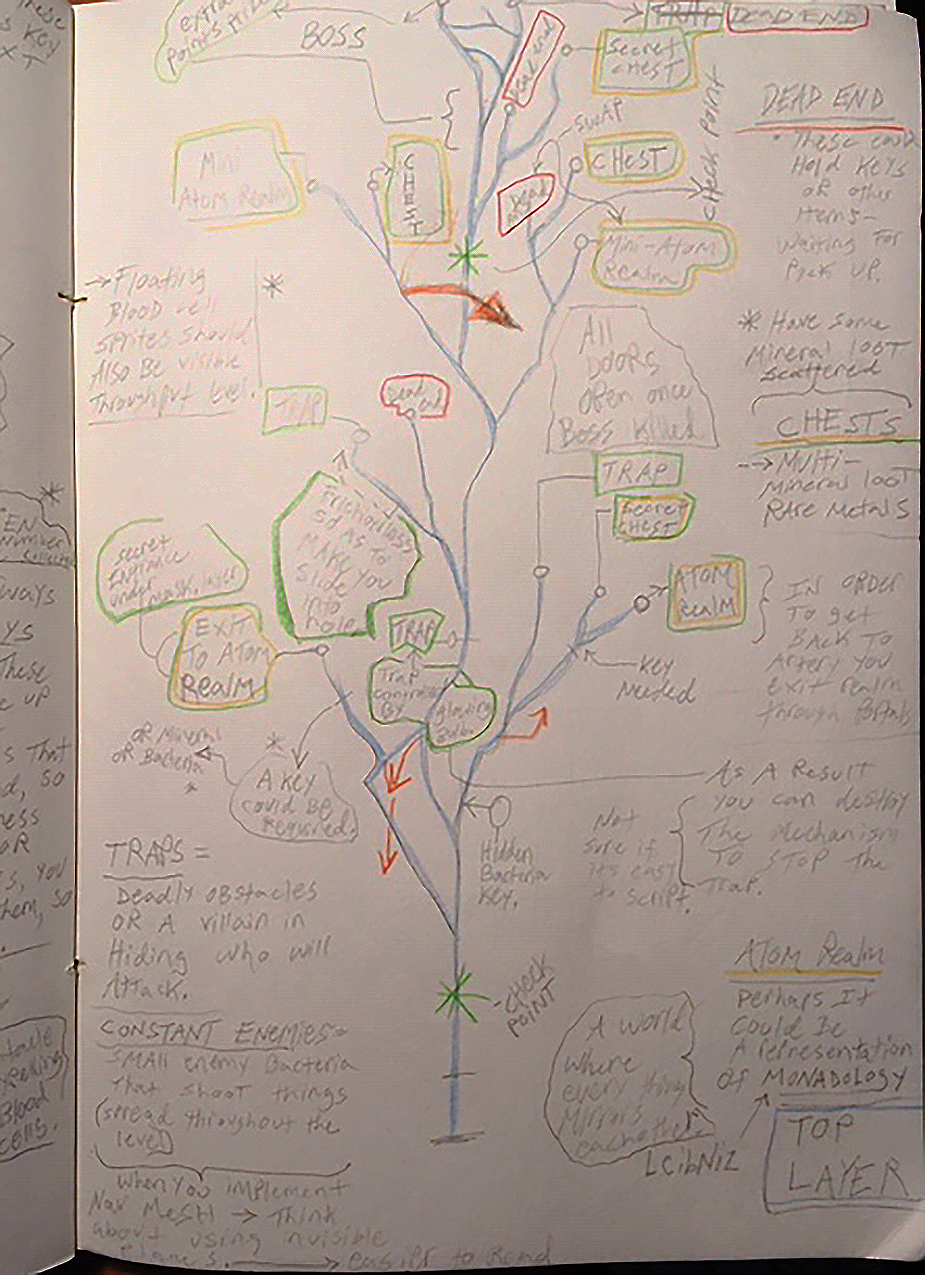 extra
points prize
BOSS
TRAP DEAD END
Dead end
Secret
CHEST
SWAP
CHECK POINT
CHEST
Dead
end
Mini
Atom Realm
CHEST
Mini-Atom
Realm
DEAD END
• These could
Hold Keys
OR other
items-
waiting For
Pick up.
* Have some
Mineral loot
scattered
CHESTS
--> Multi-
Mineral loot
RARE Metals
→ Floating
Blood cell
sprites should
Also Be visible
Throughput level.
*
TRAP
Dead
end
All
Doors
open once
Boss killed
TRAP
Secret
CHEST
Frictionless
so AS To
MAKE you
Slide
into
hole.
secret
Entrance
under mask layer
EXIT
To ATOM
REALM
TRAP
Trap
controlled
By
glowing
ATOM
REALM
IN ORDER
To get
BACK TO
Artery you
exit realm
through Portals
Key
Needed
OR Mineral
OR Bacteria
*
*
A Key
could BE
Required.
Hidden
Bacteria
Key.
As A Result
you can destroy
The Mechanism
TO STOP the
Trap.
Not
sure if
it's easy
to script.
TRAPS =
Deadly obstacles
OR A villain in
Hiding who will
Attack.
-CHECK
POINT
CONSTANT ENEMIES=
SMAll enemy Bacteria
That shoot things
(spread throughout the
level)
When you implement
Nav MeSH → Think
about using invisible
Planes. → easier to Read
A world
where
every thing
Mirrors
eachother.
LeibNiz
ATOM Realm
Perhaps It
Could Be
A representation
of MONADOLOGY
TOP
LAYER
These
Key
*
EN
Number
ways
These
up
s That
so
ness
OR
s, you
them, so
Blood
cells.